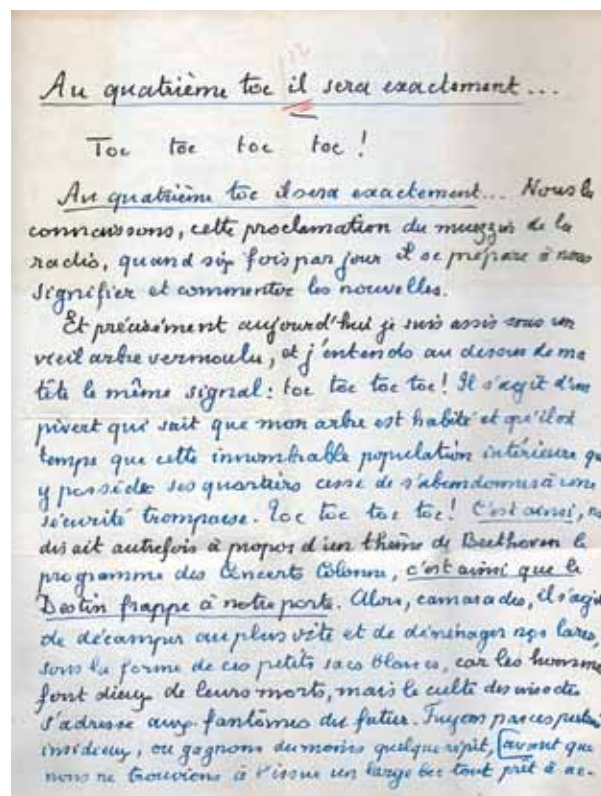 Au quatrième toc il sera exactement...
Toc toc toc toc !
Au quatrième toc il sera exactement... Nous la
connaissons, cette proclamation du muezzin de la
radio, quand six fois par jour il se prépare à nous
signifier et commenter les nouvelles.
Et précisément aujourd'hui je suis assis sous un
vieil arbre vermoulu, et j'entends au dessus de ma
tête le même signal : toc toc toc toc ! Il s'agit d'un
pivert qui sait que mon arbre est habité et qu'il est
temps que cette innombrable population intérieure qu
y possède ses quartiers cesse de s'abandonner à une
sécurité trompeuse. Toc toc toc toc ! C'est ainsi, n
disait autrefois à propos d'un thème de Beethoven le
programme des Concerts Colonne, c'est ainsi que le
Destin frappe à notre porte. Alors, camarades, il s'agit
de décamper au plus vite et de déménager nos lares,
sous la forme de ces petits sacs blancs, car les hommes
font dieux de leurs morts, mais le culte des insectes
s'adresse aux fantômes du futur. Fuyons par ces pertuis
insidieux, ou gagnons du moins quelque répit, avant que
nous ne trouvions à l'issue un large bec tout prêt à ac-